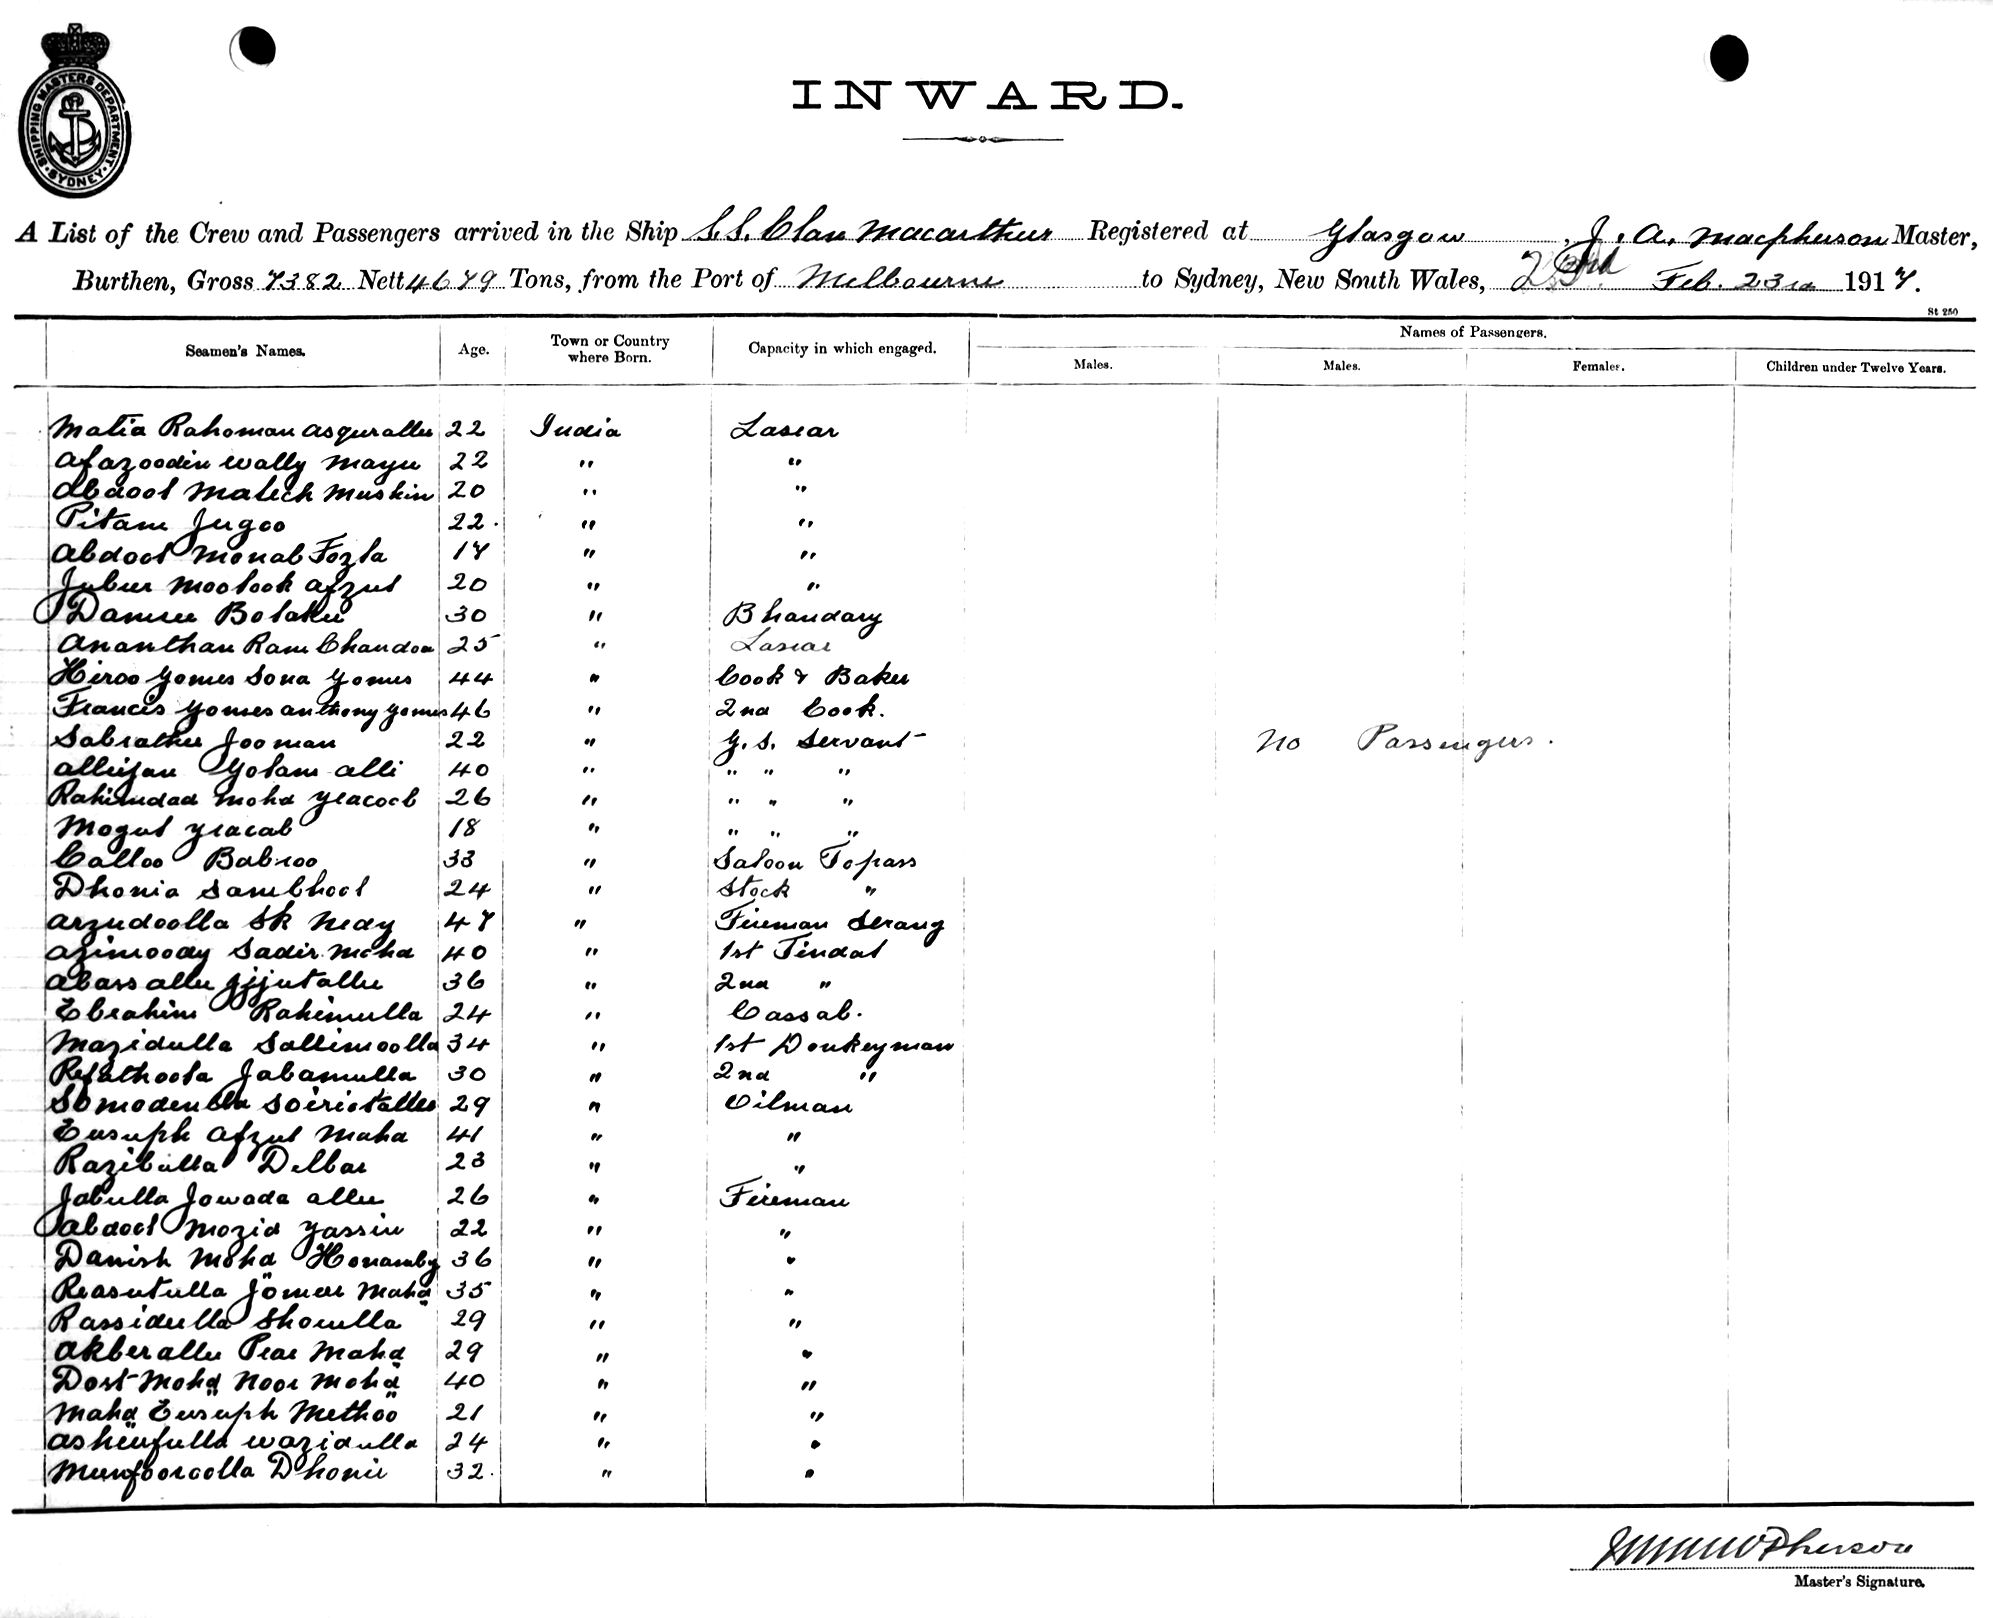 SHIPPING MASTERS DEPARTMENT
SYDNEY
INWARD.
A List of the Crew and Passengers arrived in the Ship S.S. Clan Macarthur Registered at Glasgow, J. A. Macpherson Master,
Burthen, Gross 7382 Nett 4679 Tons, from the Port of Melbourne to Sydney, New South Wales, 23rd Feb. 23rd 1917.
St 250
Names of Passengers.
Seamen's Names. Age. Town or Country where Born. Capacity in which engaged. Males. Males. Females. Children under Twelve Years.
Matia Rahoman Asgurallee 22 India Lascar
Afazoodin Wally Mayu 22 " "
Abdool Malech Muskin 20 " "
Pitam Jugoo 22. " "
Abdool Monab Fozla 17 " "
Jubur Moolook Afzul 20 " "
Damree Bolakee 30 " Bhandary
Ananthan Ram Chandoo 25 " Lascar
Hiroo Gomes Sona Gomes 44 " Cook & Baker
Francis Gomes Anthony Gomes 46 " 2nd Cook.
Sabrathee Jooman 22 " G. S. Servant
Alleejan Golam Alli 40 " " " "
Rahimdad Mohd Yeacoob 26 " " " "
Mogul Yeacab 18 " " " "
No Passengers.
Calloo Babroo 33 " Saloon Topass
Dhonia Sambhool 24 " Stock "
Arzudoolla Sk Neay 47 " Fireman Serang
Azimoody Sadir Mohd 40 " 1st Tindal
Abass Allee Jijutallee 36 " 2nd "
Ebrahim Rahimulla 24 " Cassab.
Mazidulla Sallimoolla 34 " 1st Donkeyman
Refathoola Jabamulla 30 " 2nd "
Somodenulla 29 " Oilman
Eusuph Afzul Mahd 41 " "
Razibulla Delbar 23 " "
Jabulla Jowada Allee 26 " Fireman
Abdool Mozid Yassin 22 " "
Danish Mohd Honamby 36 " "
Reasutulla Jomer Mahd 35 " "
Rassidulla Shoeulla 29 " "
Akberallee Pear Mahd 29 " "
Dost Mohd Noor Mohd 40 " "
Mahd Eusuph Methoo 21 " "
Asheufulla Wazidulla 24 " "
Munfoorcolla Dhonie 32. " "
Macpherson
Master's Signature.